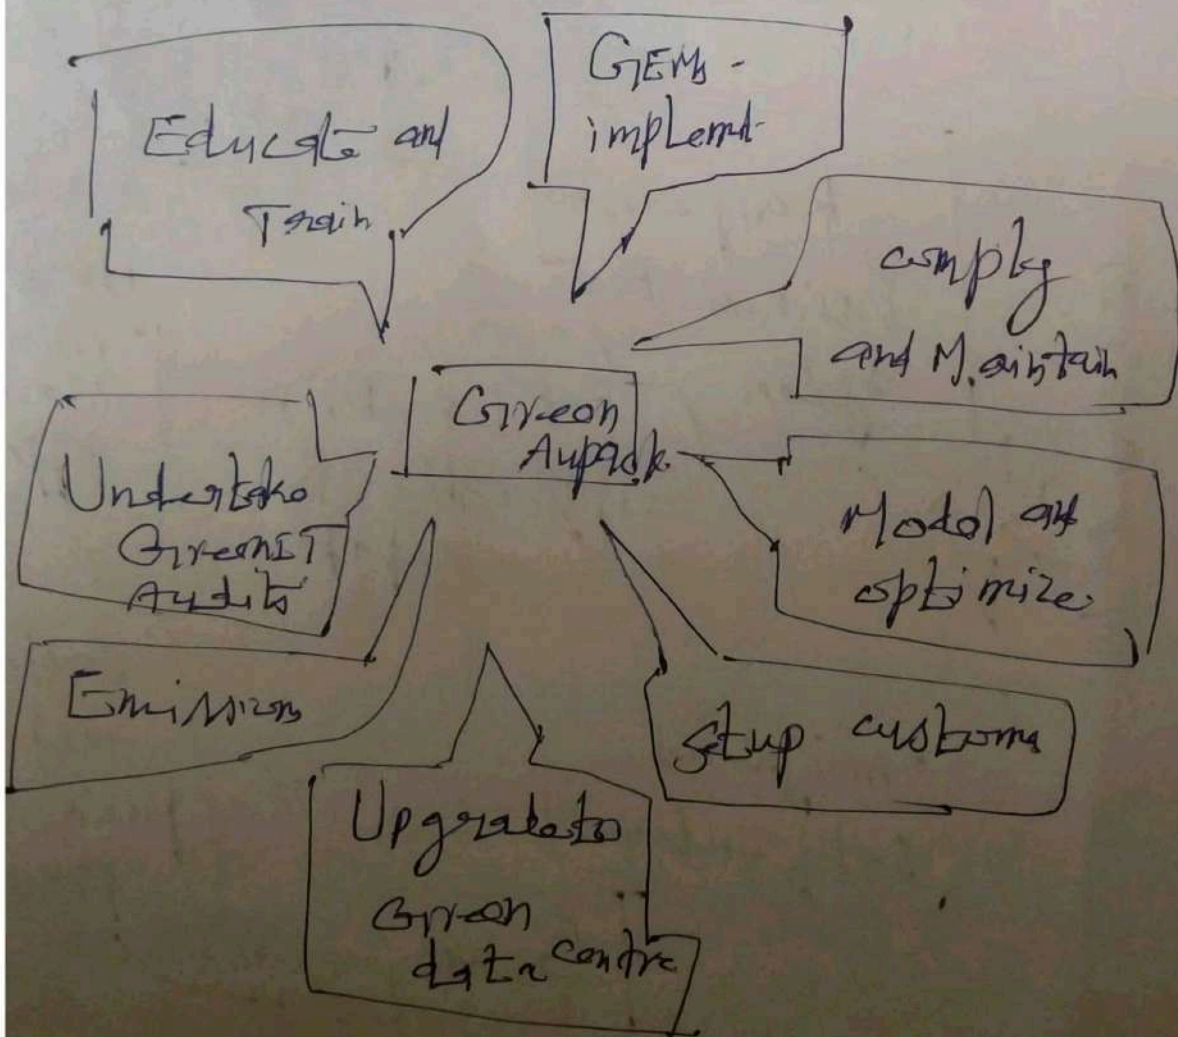 Educate and
Train
GEMs -
implemt-
comply
and Maintain
Green
Undertake
Green IT
Audits
Model and
optimize
Emissions
Setup customs
Upgrade to
Green
data centre